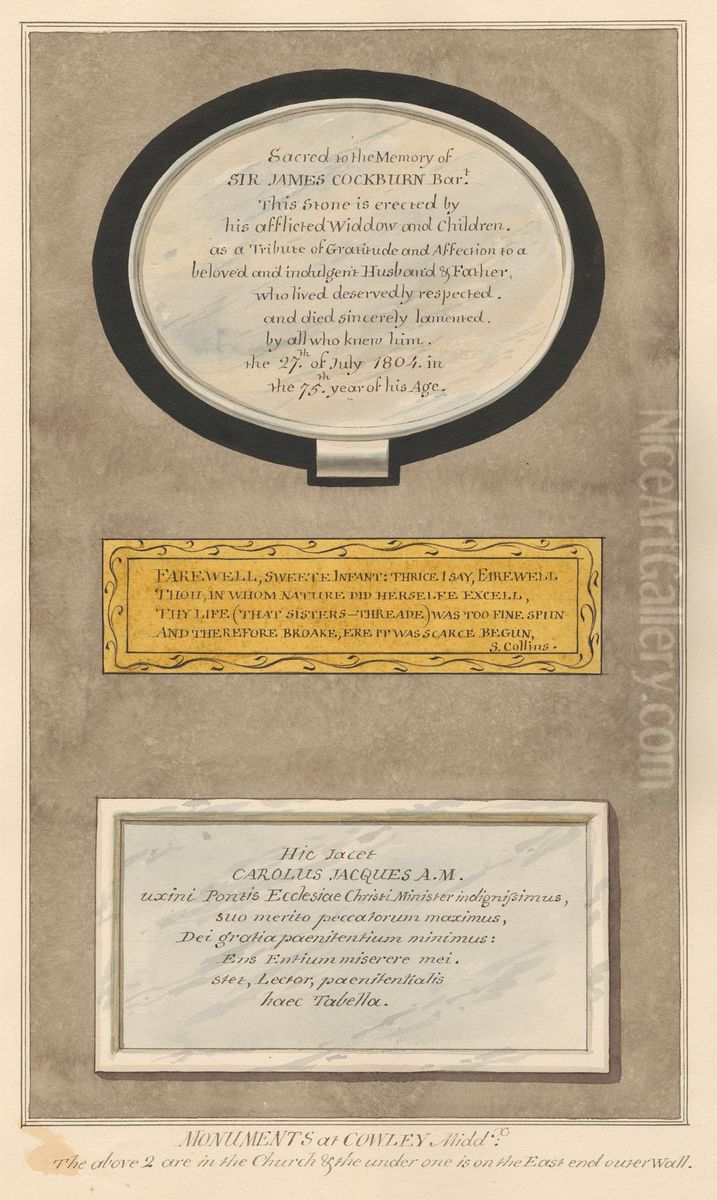 Sacred to the Memory of
SIR JAMES COCKBURN Bar.t
This Stone is erected by
his afflicted Widdow and Children.
as a Tribute of Gratitude and Affection to a
beloved and indulgent Husband & Father,
who lived deservedly respected.
and died sincerely lamented.
by all who knew him.
the 27.th of July 1804. in
the 75.th year of his Age.
FAREWELL, SWEETE INFANT: THRICE I SAY, FAREWELL
THOU, IN WHOM NATURE DID HERSELFE EXCELL,
THY LIFE (THAT SISTERS-THREADE) WAS TOO FINE SPUN
AND THEREFORE BROAKE, ERE IT WAS SCARCE BEGUN,
S. Collins.
Hic Jacet
CAROLUS JACQUES A.M.
uxini Pontis Ecclesiae Christi Minister indignissimus,
suo merito peccatorum maximus,
Dei gratia paenitentium minimus:
Ens Entium miserere mei.
stet, Lector, paenitentialis
haec Tabella.
MONUMENTS at COWLEY Midd.x
The above 2 are in the Church & the under one is on the East end outer Wall.
NiceArtGallery.com